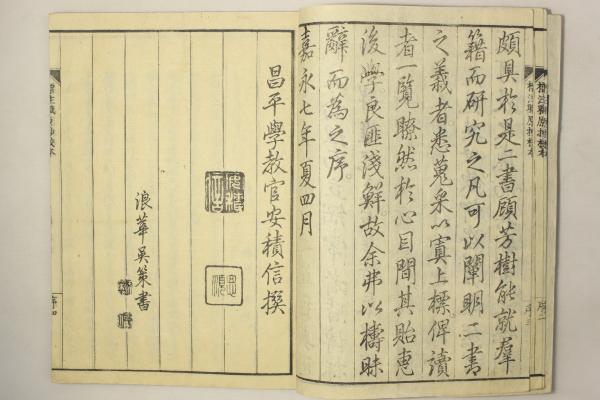 頗具於是二書顧芳樹能就羣
籍而研究之凡可以闡明二書
之義者悉蒐采以寘上標俾讀
者一覽瞭然於心目間其貽惠
後學良匪淺鮮故余弗以檮昧
辭而為之序
嘉永七年夏四月
昌平學教官安積信撰
浪華吳策書
序四